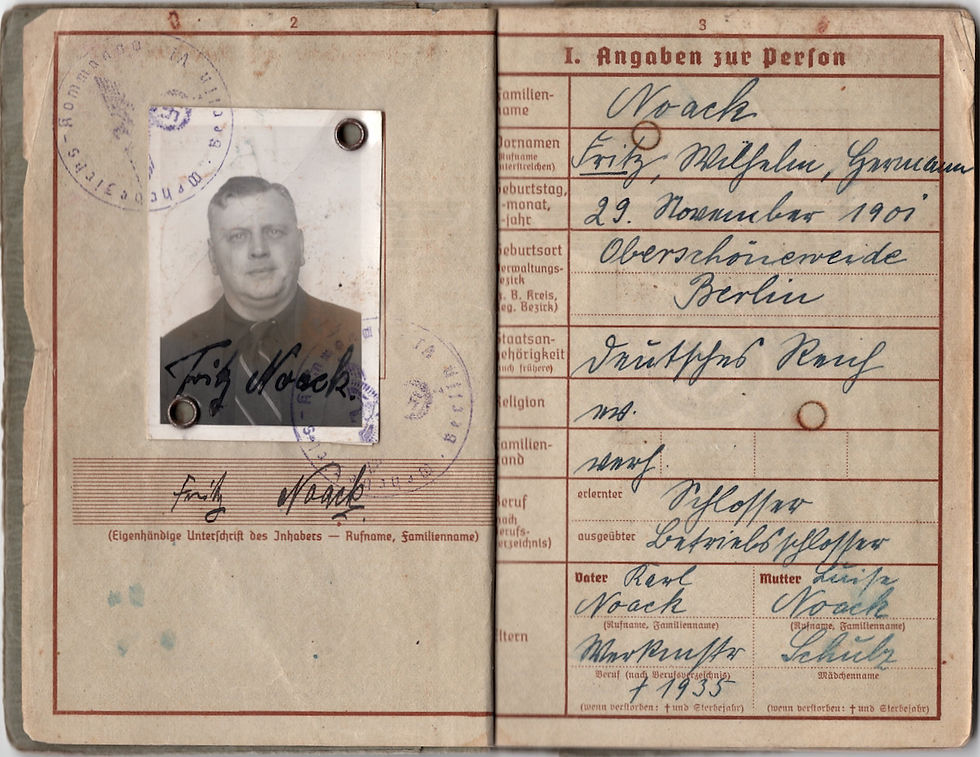 2
Fritz Noack
Fritz Noack
(Eigenhändige Unterschrift des Inhabers — Rufname, Familienname)
3
I. Angaben zur Person
amilien-
ame
Noack
ornamen
(Rufname
nterstreichen)
Fritz, Wilhelm, Hermann
eburtstag,
-monat,
-jahr
29. November 1901
eburtsort
erwaltungs-
ezirk
z. B. Kreis,
eg. Bezirk)
Oberschöneweide
Berlin
taatsan-
ehörigkeit
uch frühere)
Deutsches Reich
eligion
ev.
amilien-
and
verh.
eruf
nach
erufs-
erzeichnis)
erlernter Schlosser
ausgeübter Betriebsschlosser
ltern
Vater Karl
Noack
(Rufname, Familienname)
Werkmstr
Beruf (nach Berufsverzeichnis)
† 1935
(wenn verstorben: † und Sterbejahr)
Mutter Luise
Noack
(Rufname, Familienname)
Schulz
Mädchenname
(wenn verstorben: † und Sterbejahr)